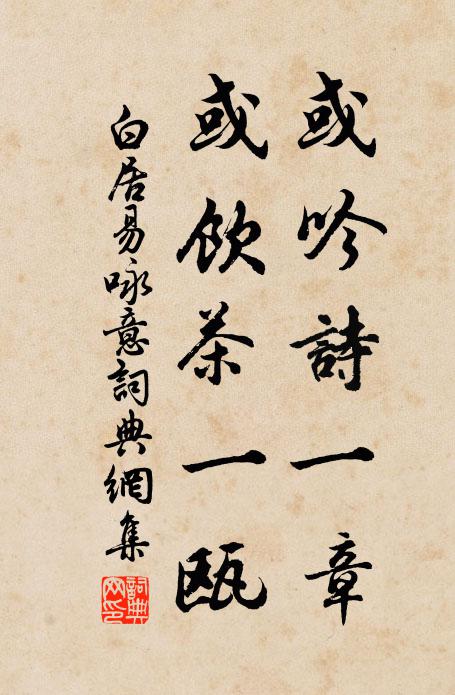 或吟詩一章
或飲茶一甌
白居易咏意詞典網集
詞典網印